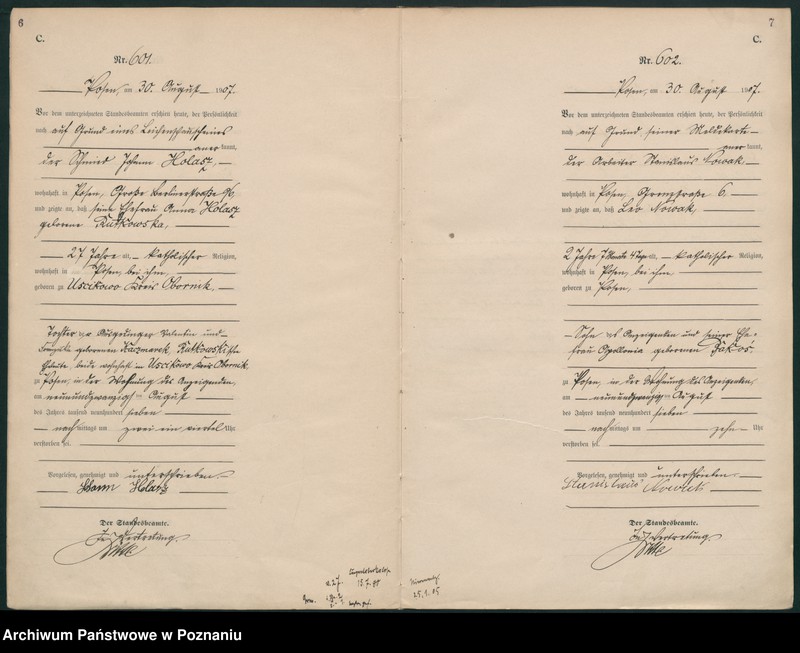 6
C.
Nr. 601.
Posen, am 30. August 1907.
Vor dem unterzeichneten Standesbeamten erschien heute, der Persönlichkeit
nach auf Grund eines Leichenschauscheines
anerkannt,
der Schmied Johann Holasz,
wohnhaft in Posen, Große Berlinerstraße 96,
und zeigte an, daß seine Ehefrau Anna Holasz
geborene Rutkowska,
27 Jahre alt, katholischer Religion,
wohnhaft in Posen, bei ihm,
geboren zu Uscikowo Kreis Obornik,
Tochter der Ausgedinger Valentin und
Franziska geborenen Kaczmarek, Rutkowski'schen
Eheleute, beide wohnhaft in Uscikowo Kreis Obornik
zu Posen, in der Wohnung des Anzeigenden,
am neunundzwanzigsten August
des Jahres tausend neunhundert sieben
nachmittags um zwei ein viertel Uhr
verstorben sei.
Vorgelesen, genehmigt und unterschrieben.
Johann Holasz
Der Standesbeamte.
In Vertretung.
7
C.
Nr. 602.
Posen, am 30. August 1907.
Vor dem unterzeichneten Standesbeamten erschien heute, der Persönlichkeit
nach auf Grund seiner Meldekarte
anerkannt,
der Arbeiter Stanislaus Nowak,
wohnhaft in Posen, Grenzstraße 6,
und zeigte an, daß Leo Nowak,
2 Jahre 7 Monate 4 Tage alt, katholischer Religion,
wohnhaft in Posen, bei ihm
geboren zu Posen,
Sohn des Anzeigenden und seiner Ehe-
frau Apollonia geborenen
zu Posen, in der Wohnung des Anzeigenden,
am neunundzwanzigsten August
des Jahres tausend neunhundert sieben
nachmittags um zehn Uhr
verstorben sei.
Vorgelesen, genehmigt und unterschrieben.
Stanislaus Nowak
Der Standesbeamte.
In Vertretung.
13.7.
25.1.05
Archiwum Państwowe w Poznaniu